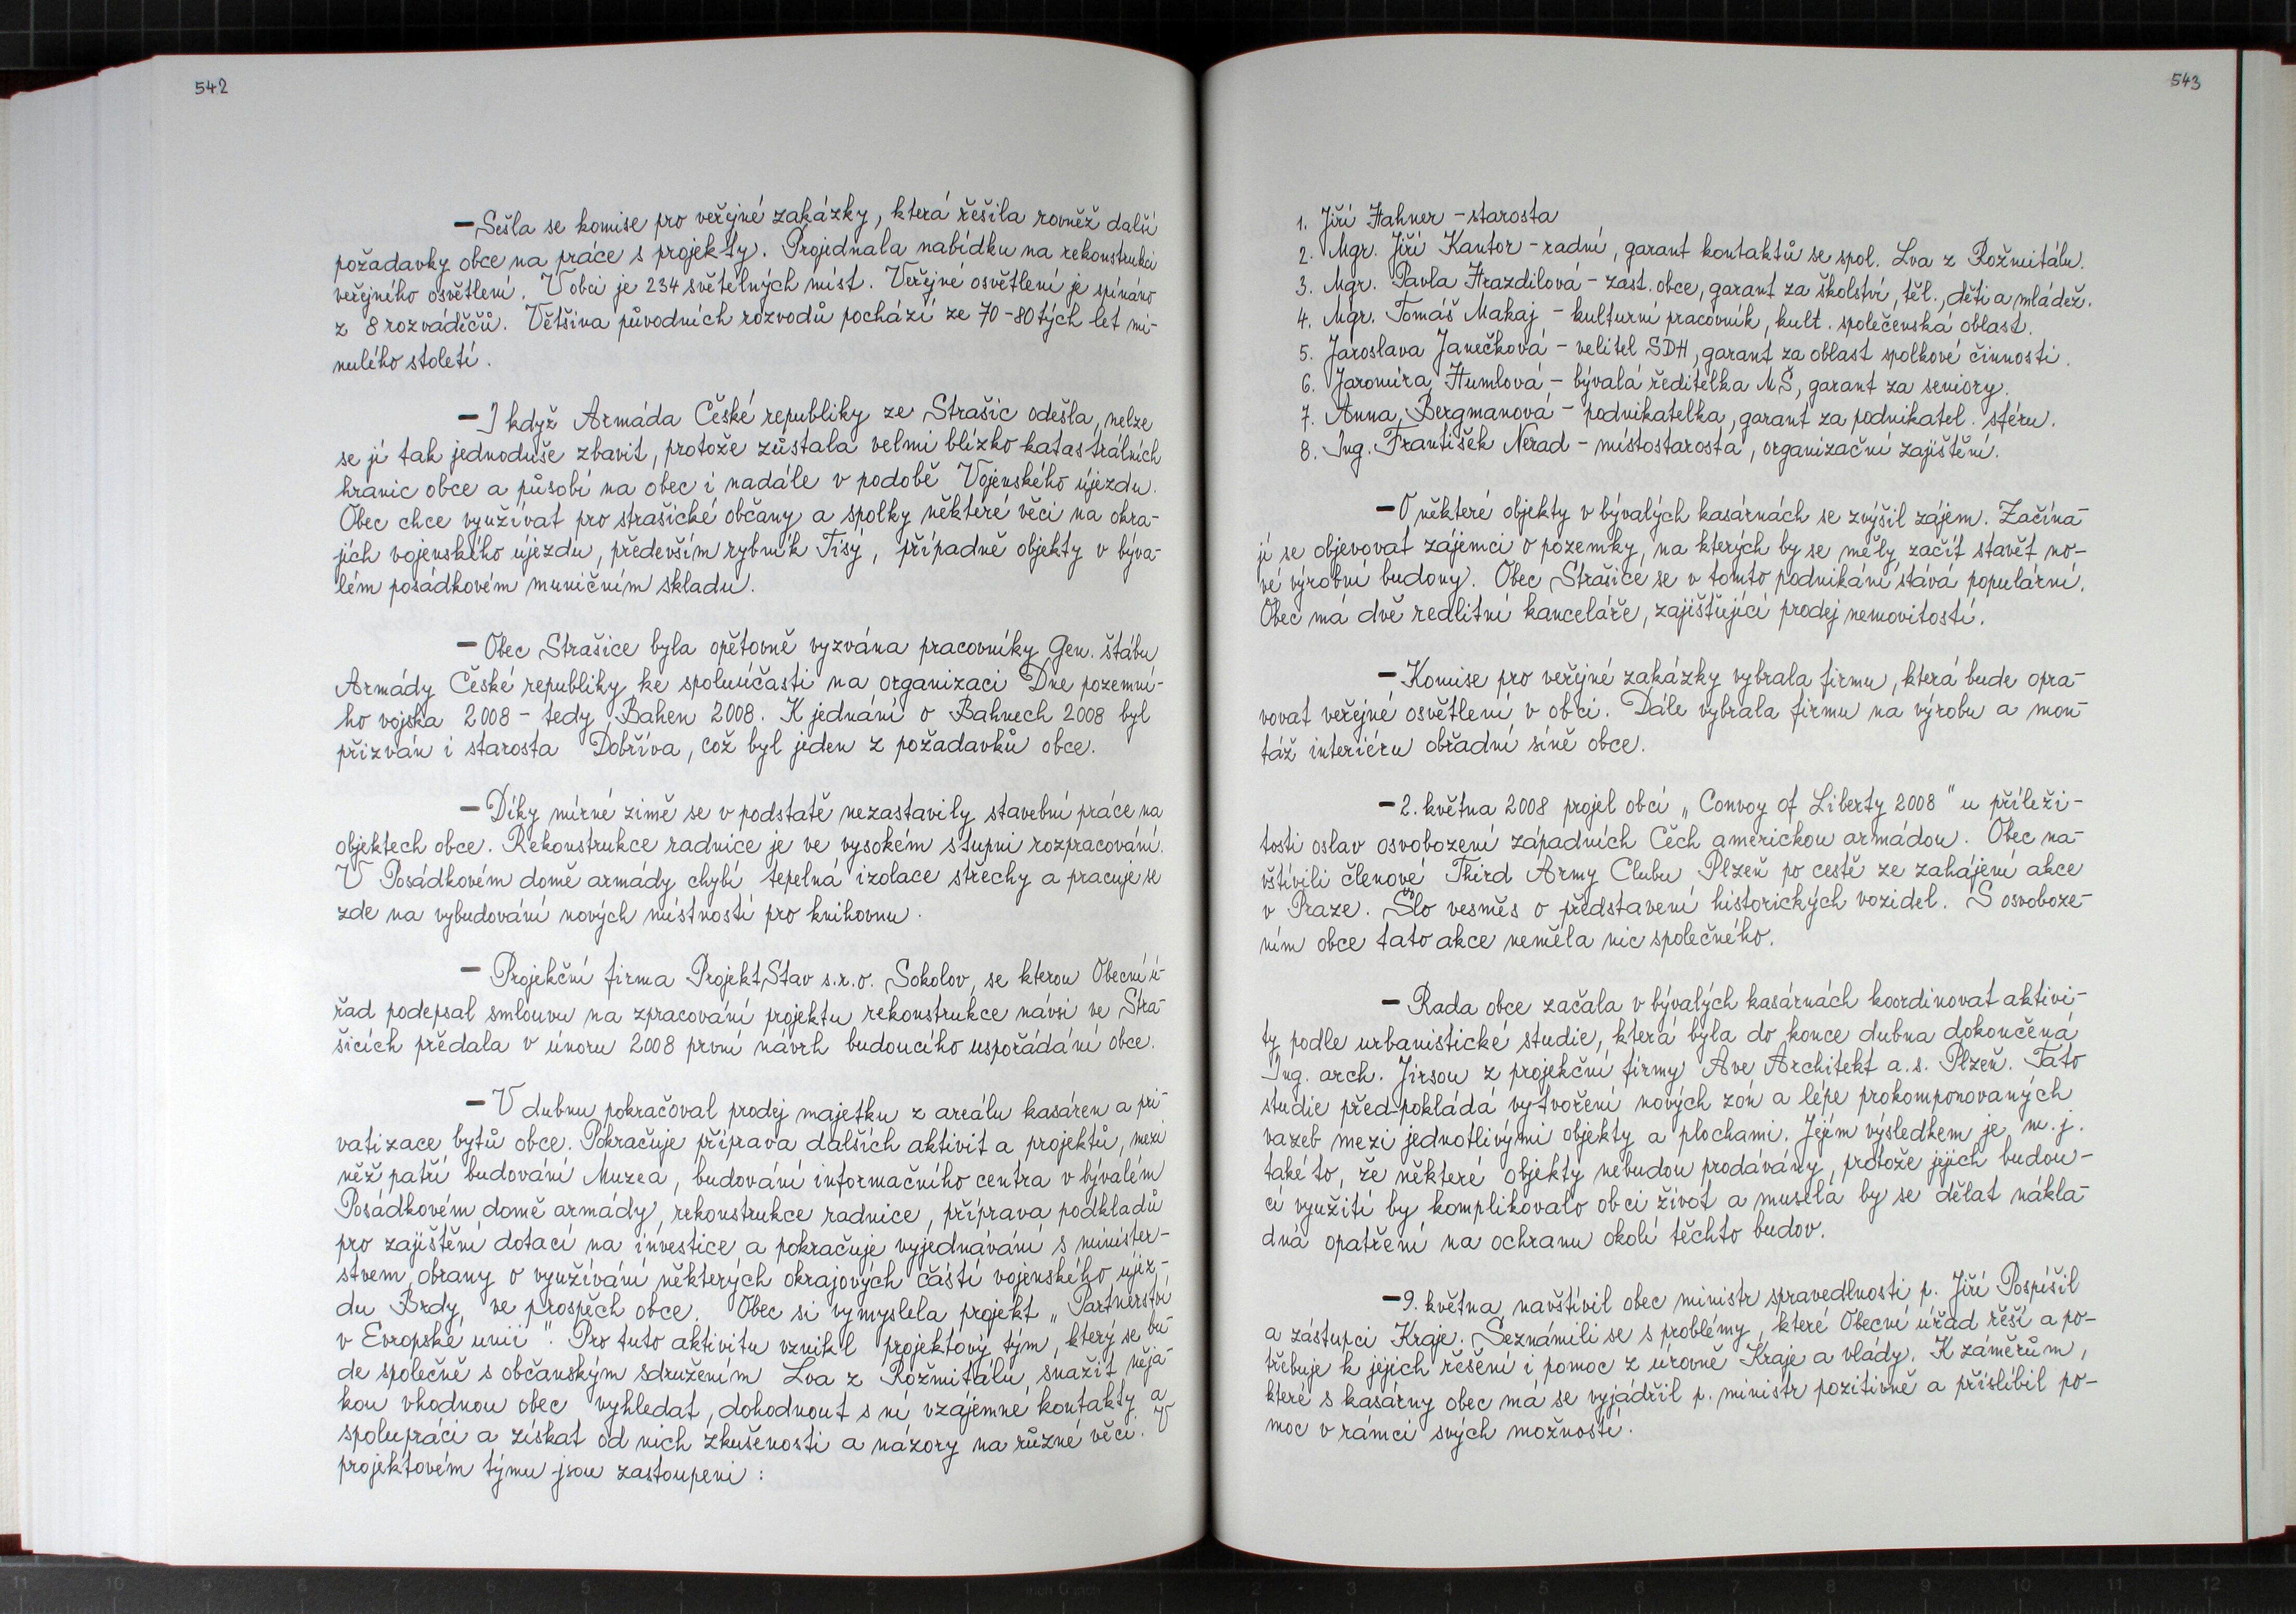 542
— Sešla se komise pro veřejné zakázky, která řešila rovněž další
požadavky obce na práce s projekty. Projednala nabídku na rekonstrukci
veřejného osvětlení. V obci je 234 světelných míst. Veřejné osvětlení je spínáno
z 8 rozváděčů. Většina původních rozvodů pochází ze 70-80tých let mi-
nulého století.
— I když Armáda České republiky ze Strašic odešla, nelze
se jí tak jednoduše zbavit, protože zůstala velmi blízko katastrálních
hranic obce a působí na obec i nadále v podobě Vojenského újezdu.
Obec chce využívat pro strašické občany a spolky některé věci na okra-
jích vojenského újezdu, především rybník Tisý, případně objekty v býva-
lém posádkovém muničním skladu.
— Obec Strašice byla opětovně vyzvána pracovníky Gen. štábu
Armády České republiky ke spoluúčasti na organizaci Dne pozemní-
ho vojska 2008 - tedy Bahen 2008. K jednání o Bahnech 2008 byl
přizván i starosta Dobříva, což byl jeden z požadavků obce.
— Díky mírné zimě se v podstatě nezastavily stavební práce na
objektech obce. Rekonstrukce radnice je ve vysokém stupni rozpracování.
V Posádkovém domě armády chybí tepelná izolace střechy a pracuje se
zde na vybudování nových místností pro knihovnu.
— Projekční firma ProjektStav s.r.o. Sokolov, se kterou Obecní ú-
řad podepsal smlouvu na zpracování projektu rekonstrukce návsi ve Stra-
šicích předala v únoru 2008 první návrh budoucího uspořádání obce.
— V dubnu pokračoval prodej majetku z areálu kasáren a pri-
vatizace bytů obce. Pokračuje příprava dalších aktivit a projektů, mezi
něž patří budování Muzea, budování informačního centra v bývalém
Posádkovém domě armády, rekonstrukce radnice, příprava podkladů
pro zajištění dotací na investice a pokračuje vyjednávání s minister-
stvem obrany o využívání některých okrajových částí vojenského újez-
du Brdy, ve prospěch obce. Obec si vymyslela projekt „Partnerství
v Evropské unii". Pro tuto aktivitu vznikl projektový tým, který se bu-
de společně s občanským sdružením Lva z Rožmitálu, snažit něja-
kou vhodnou obec vyhledat, dohodnout s ní vzájemné kontakty a
spolupráci a získat od nich zkušenosti a názory na různé věci. V
projektovém týmu jsou zastoupeni :
543
1. Jiří Hahner - starosta
2. Mgr. Jiří Kantor - radní, garant kontaktů se spol. Lva z Rožmitálu.
3. Mgr. Pavla Hrazdilová - zast. obce, garant za školství, těl., děti a mládež.
4. Mgr. Tomáš Makaj - kulturní pracovník, kult. společenská oblast.
5. Jaroslava Janečková - velitel SDH, garant za oblast spolkové činnosti.
6. Jaromíra Humlová - bývalá ředitelka MŠ, garant za seniory.
7. Anna Bergmanová - podnikatelka, garant za podnikatel. sféru.
8. Ing. František Nerad - místostarosta, organizační zajištění.
— O některé objekty v bývalých kasárnách se zvýšil zájem. Začína-
jí se objevovat zájemci o pozemky, na kterých by se měly začít stavět no-
vé výrobní budovy. Obec Strašice se v tomto podnikání stává populární.
Obec má dvě redlitní kanceláře, zajišťující prodej nemovitostí.
— Komise pro veřejné zakázky vybrala firmu, která bude opra-
vovat veřejné osvětlení v obci. Dále vybrala firmu na výrobu a mon-
táž interiéru obřadní síně obce.
— 2. května 2008 projel obcí „Convoy of Liberty 2008" u příleži-
tosti oslav osvobození západních Čech americkou armádou. Obec na-
vštívili členové Third Army Clubu Plzeň po cestě ze zahájení akce
v Praze. Šlo vesměs o představení historických vozidel. S osvoboze-
ním obce tato akce neměla nic společného.
— Rada obce začala v bývalých kasárnách koordinovat aktivi-
ty podle urbanistické studie, která byla do konce dubna dokončena
Ing. arch. Jirsou z projekční firmy Ave Architekt a.s. Plzeň. Tato
studie předpokládá vytvoření nových zón a lépe prokomponovaných
vazeb mezi jednotlivými objekty a plochami. Jejím výsledkem je m.j.
také to, že některé objekty nebudou prodávány, protože jejich budou-
cí využití by komplikovalo obci život a musela by se dělat nákla-
dná opatření na ochranu okolí těchto budov.
— 9. května navštívil obec ministr spravedlnosti p. Jiří Pospíšil
a zástupci Kraje. Seznámili se s problémy, které Obecní úřad řeší a po-
třebuje k jejich řešení i pomoc z úrovně Kraje a vlády. K záměrům,
které s kasárny obec má se vyjádřil p. ministr pozitivně a přislíbil po-
moc v rámci svých možností.